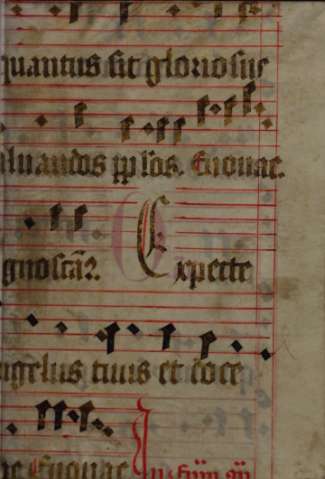 quantus sit gloriosus
aluandos pplos. Euouae.
gnoscat2. Expecte
ngelus tuus et doce
ne Euouae